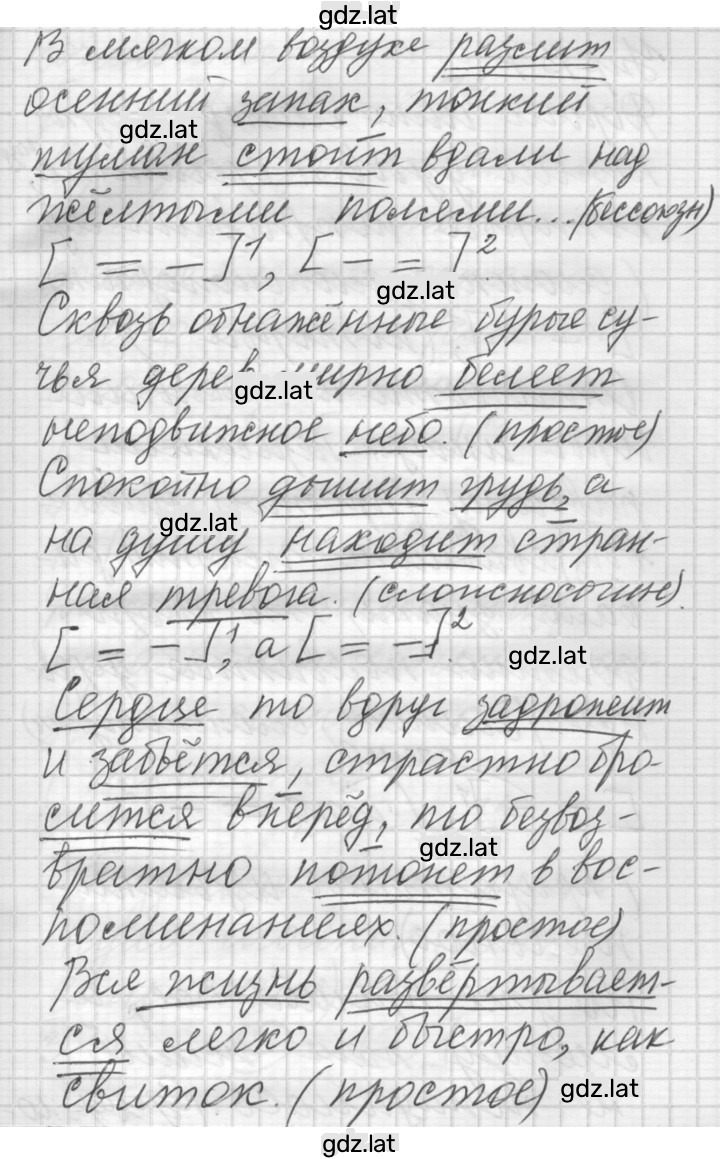 gdz.lat
В мягком воздухе разлит
осенний запах, тонкий
gdz.lat
туман стоит вдали над
жёлтыми полями... (бессоюзн)
[ = – ]¹, [ – = ]²
gdz.lat
Сквозь обнажённые бурые су-
чья дерев мирно белеет
gdz.lat
неподвижное небо. (простое)
Спокойно дышит грудь, а
gdz.lat
на душу находит стран-
ная тревога. (сложносочин).
[ = – ]¹, а [ = – ]².
gdz.lat
Сердце то вдруг задрожит
и забьётся, страстно бро-
сится вперёд, то безвоз-
gdz.lat
вратно потонет в вос-
поминаниях. (простое)
Вся жизнь развёртывает-
ся легко и быстро, как
свиток. (простое)
gdz.lat
gdz.lat